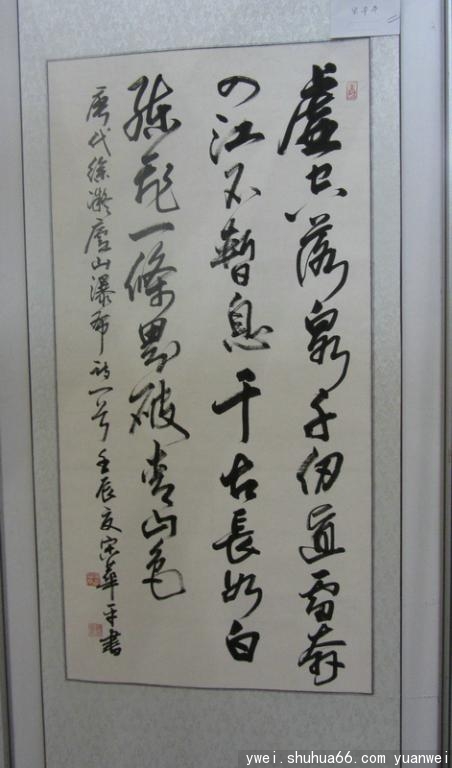 虛空落泉千仞直雷奔
入江不暫息千古長如白
練飛一條界破青山色
唐代徐凝廬山瀑布詩一首 壬辰夏宋華平書
ywei.shuhua66.com yuanwei